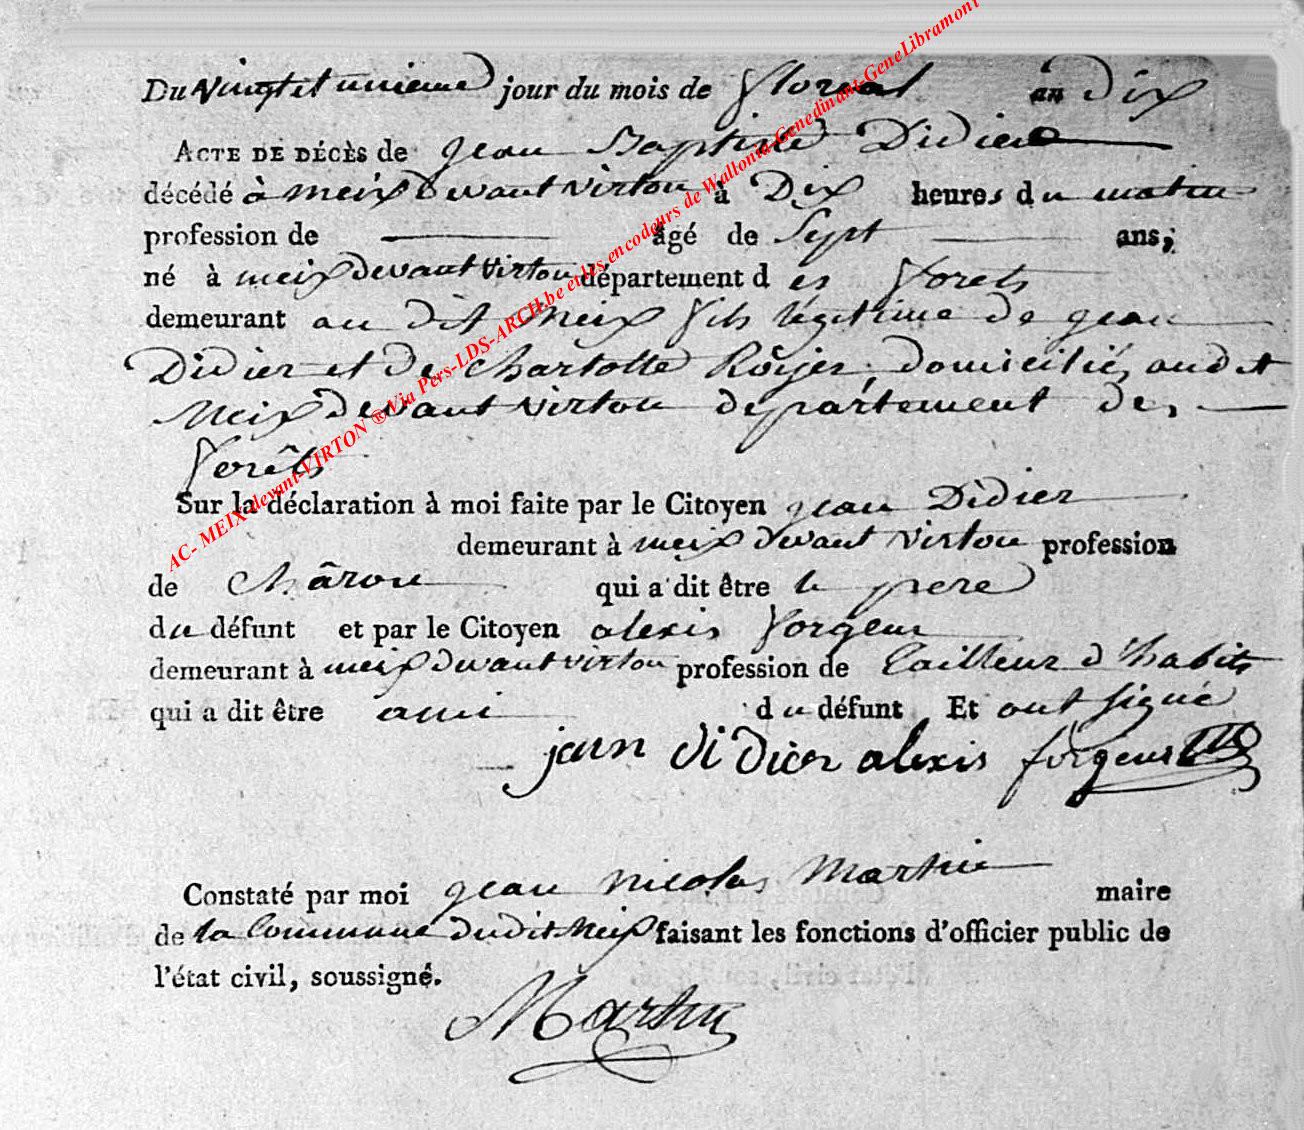 Du vingt et unieme jour du mois de floreal an Dix
ACTE DE DÉCÈS de jean Baptiste Didier
décédé à meix devant virton à Dix heures du matin
profession de âgé de Sept ans,
né à meix devant virton département des forets
demeurant au dit meix fils légitime de jean
Didier et de charlotte Roijer, domiciliés audit
Meix devant virton département des
forêts
Sur la déclaration à moi faite par le Citoyen jean Didier
demeurant à meix devant virton profession
de Châron qui a dit être le pere
du défunt et par le Citoyen alexis forgeur
demeurant à meix devant virton profession de tailleur d'habits
qui a dit être ami du défunt Et ont signé
jean didier alexis forgeur
Constaté par moi jean nicolas Martin maire
de la Commune dudit Meix faisant les fonctions d'officier public de
l'état civil, soussigné.
Martin
AC- MEIX-devant-VIRTON ® Via Pers-LDS-ARCH.be et les encodeurs de Wallonia-Genedinant-GeneLibramont